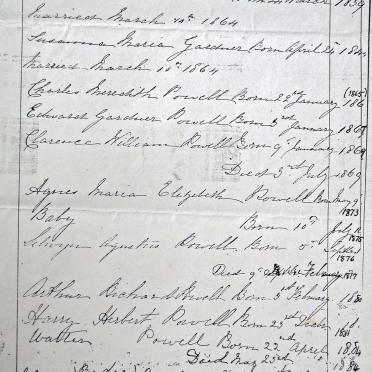 March 1839
Married March 10th 1864
Susanna Maria Gardner Born April 24th
Married March 10th 1864
Charles Meredith Powell Born 22nd January 186 (1865)
Edward Gardner Powell Born 3rd January 1867
Clarence William Powell Born 9th January 1869
Died 3rd July 1869
Agnes Maria Elizabeth Powell Born May 9
1873
Baby Born 10th July
1875
Selwyn Agustus Powell Born 5
1876
Died 9th February 1877
Arthur Richard Powell Born 5th February 1880
Harry Herbert Powell Born 23rd
1881
Walter Powell Born 22nd April 1884
Died May 23rd 1884